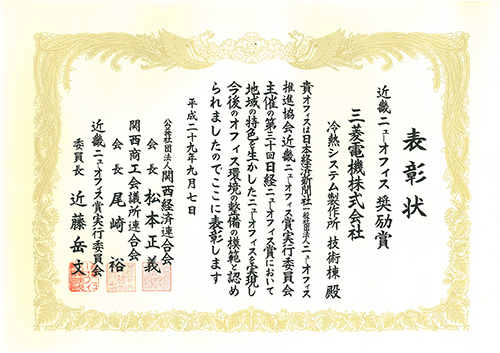 表彰状
近畿ニューオフィス奨励賞
三菱電機株式会社
冷熱システム製作所 技術棟 殿
貴オフィスは日本経済新聞社 一般社団法人ニューオフィス
推進協会近畿ニューオフィス賞実行委員会
主催の第三十回日経ニューオフィス賞において
地域の特色を生かしたニューオフィスを実現し
今後のオフィス環境の整備の模範と認め
られましたのでここに表彰します
平成二十九年九月七日
公益社団法人 関西経済連合会
会長 松本正義
関西商工会議所連合会
会長 尾崎裕
近畿ニューオフィス賞実行委員会
委員長 近藤岳文